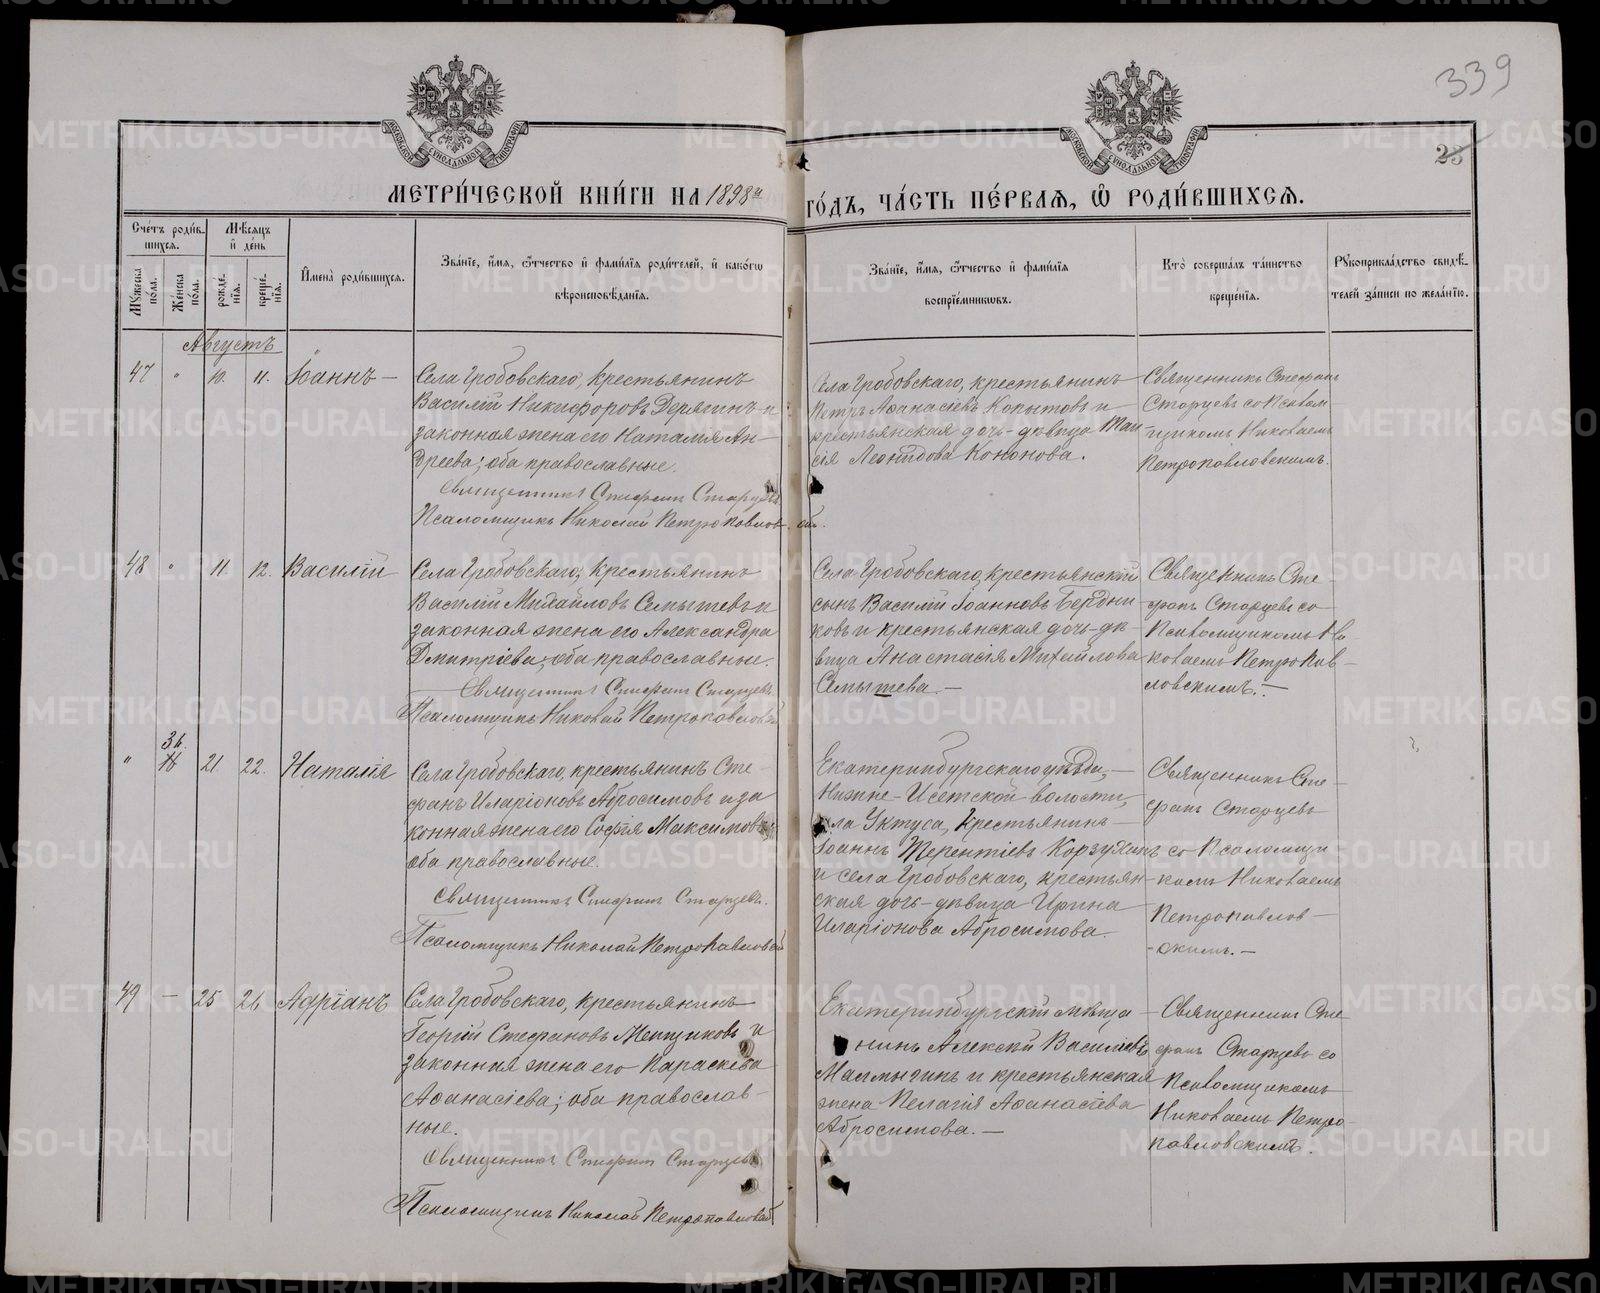 339
23
МОСКОВСКОЙ СѴНОДАЛЬНОЙ ТИПОГРАФІИ
МОСКОВСКОЙ СѴНОДАЛЬНОЙ ТИПОГРАФІИ
МЕТРИ́ЧЕСКОЙ КНИ́ГИ НА 1898й ГО́ДЪ, ЧА́СТЬ ПЕ́РВАЯ, Ѡ҆ РОДИ́ВШИХСЯ.
Сче́тъ роди́в-
шихся.
Мѣ́сяцъ
и҆ де́нь
Мꙋ́жеска
по́ла.
Же́нска
по́ла.
рожде́-
нїя.
креще́-
нїя.
И҆мена̀ роди́вшихся.
Зва́нїе, и҆́мя, ѻ҆́тчество и҆ фами́лїя роди́телей, и҆ како́гѡ
вѣроисповѣ́данїя.
Зва́нїе, и҆́мя, ѻ҆́тчество и҆ фами́лїя
воспрїе́мниковъ.
Кто̀ соверша́лъ та́инство
креще́нїя.
Рꙋкоприкла́дство свидѣ́-
телей за́писи по жела́нїю.
Августъ
47 " 10. 11. Іоаннъ —
Села Гробовскаго, крестьянинъ
Василій Никифоровъ Дерягинъ и
законная жена его Наталія Ан-
дреева; оба православные.
Священникъ Стефанъ Старцевъ
Псаломщикъ Николай Петропавловскій.
Села Гробовскаго, крестьянинъ
Петръ Аѳанасіевъ Копытовъ и
крестьянская дочь-дѣвица Таи
сія Леонтидова Кононова.
Священникъ Стефанъ
Старцевъ со Псалом
щикомъ Николаемъ
Петропавловскимъ.
48 " 11. 12. Василій
Села Гробовскаго, крестьянинъ
Василій Михайловъ Семышевъ и
законная жена его Александра
Дмитріева; оба православные.
Священникъ Стефанъ Старцевъ
Псаломщикъ Николай Петропавловскій
Села Гробовскаго, крестьянскій
сынъ Василій Іоанновъ Бердни
ковъ и крестьянская дочь-дѣ-
вица Анастасія Михайлова
Семышева. —
Священникъ Сте-
фанъ Старцевъ со
Псаломщикомъ Ни
колаемъ Петропав-
ловскимъ. —
" 36. 21. 22. Наталія
Села Гробовскаго, крестьянинъ Сте-
фанъ Иларіоновъ Абросимовъ и за
конная жена его Софія Максимова;
оба православные.
Священникъ Стефанъ Старцевъ.
Псаломщикъ Николай Петропавловскій
Екатеринбургскаго уѣзда, —
Нижне-Исетской волости,
села Уктуса, крестьянинъ —
Іоаннъ Терентіевъ Корзухинъ
и села Гробовскаго, крестьян-
ская дочь-дѣвица Ирина
Иларіонова Абросимова.
Священникъ Сте-
фанъ Старцевъ
со Псаломщи
комъ Николаемъ
Петропавлов-
скимъ. —
49 — 25 26 Адріанъ
Села Гробовскаго, крестьянинъ
Георгій Стефановъ Меншиковъ и
законная жена его Параскева
Аѳанасіева; оба православ-
ные.
Священникъ Стефанъ Старцевъ
Псаломщикъ Николай Петропавловскій
Екатеринбургскій мѣща —
нинъ Алексѣй Василіевъ
Малмыгинъ и крестьянская
жена Пелагія Аѳанасіева
Абросимова. —
Священникъ Сте
фанъ Старцевъ со
Псаломщикомъ
Николаемъ Петро-
павловскимъ.
METRIKI.GASO-URAL.RU